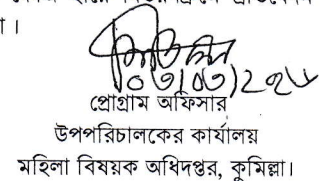 া।
প্রোগ্রাম অফিসার
উপপরিচালকের কার্যালয়
মহিলা বিষয়ক অধিদপ্তর, কুমিল্লা।